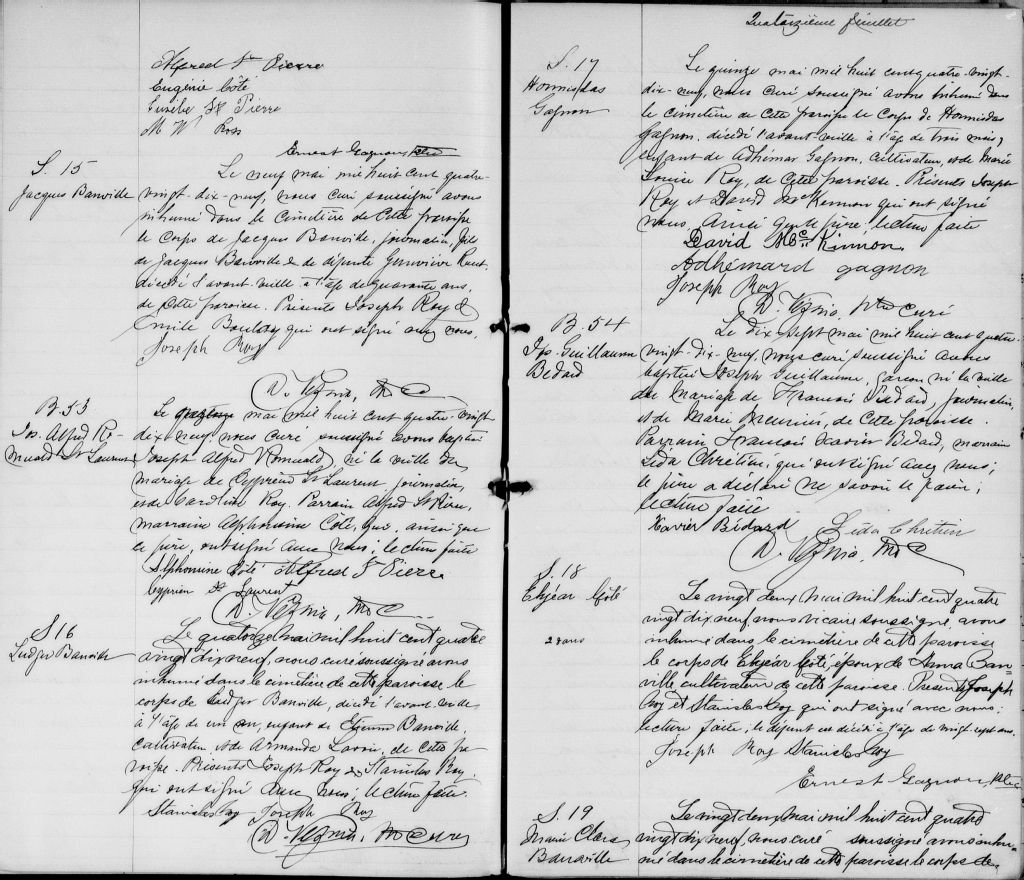 Alfred St Pierre
Eugénie Côté
Eusèbe St Pierre
M. W. Ross
Ernest Gagnon Ptre
S. 15
Jacques Banville
Le neuf mai mil huit cent quatre-
vingt-dix-neuf, nous curé soussigné avons
inhumé dans le cimetière de cette paroisse
le corps de Jacques Banville, journalier, fils
de Jacques Banville & de défunte Geneviève
décédé l'avant-veille à l'âge de quarante ans,
de cette paroisse. Présents Joseph Roy &
Emile Boulay qui ont signé avec nous.
Joseph Roy
B. 53
Jos. Alfred Ro-
muald St Laurent
Le quatorze mai mil huit cent quatre-vingt
dix-neuf, nous curé soussigné avons baptisé
Joseph Alfred Romuald, né la veille du
mariage de Cyprien St Laurent, journalier,
et de Caroline Roy. Parrain Alfred St Pierre,
marraine Alphonsine Côté, qui, ainsi que
le père, ont signé avec nous; lecture faite
Alphonsine Côté Alfred St Pierre
Cyprien St Laurent
S 16
Ludger Banville
Le quatorze mai mil huit cent quatre
vingt dix neuf, nous curé soussigné avons
inhumé dans le cimetière de cette paroisse le
corps de Ludger Banville, décédé l'avant-veille
à l'âge de un an, enfant de Etienne Banville,
cultivateur, et de Armande Lavoie, de cette pa-
roisse. Présents Joseph Roy & Stanislas Roy
qui ont signé avec nous; lecture faite.
Stanislas Roy Joseph Roy
Quatorzième feuillet
S. 17
Hormisdas
Gagnon
Le quinze mai mil huit cent quatre-vingt-
dix-neuf, nous curé soussigné avons inhumé dans
le cimetière de cette paroisse le corps de Hormisdas
Gagnon, décédé l'avant-veille à l'âge de trois mois,
enfant de Adhémar Gagnon, cultivateur, et de Marie
Louise Roy, de cette paroisse. Présents Joseph
Roy et David McKinnon qui ont signé
nous, ainsi que le père; lecture faite
David McKinnon
Adhémard gagnon
Joseph Roy
Ptre curé
B. 54
Jos. Guillaume
Bédard
Le dix sept mai mil huit cent quatre-
vingt-dix-neuf, nous curé soussigné avons
baptisé Joseph Guillaume, garçon né la veille
du mariage de François Bédard, journalier,
et de Marie Meunier, de cette paroisse.
Parrain François Xavier Bédard, marraine
Léda Chrétien, qui ont signé avec nous;
le père a déclaré ne savoir le faire;
lecture faite
Xavier Bédard Léda Chrétien
S. 18
Elzéar Côté
27 ans
Le vingt deux mai mil huit cent quatre
vingt dix neuf, nous vicaire soussigné, avons
inhumé dans le cimetière de cette paroisse
le corps de Elzéar Côté, époux de Anna Ban-
ville cultivateur de cette paroisse. Présents Joseph
Roy et Stanislas Roy qui ont signé avec nous;
lecture faite; le défunt est décédé à l'âge de vingt-sept ans.
Joseph Roy Stanislas Roy
Ernest Gagnon, Ptre
S. 19
Marie Clara
Banville
Le vingt deux mai mil huit cent quatre
vingt dix neuf, nous curé soussigné avons inhu-
mé dans le cimetière de cette paroisse le corps de